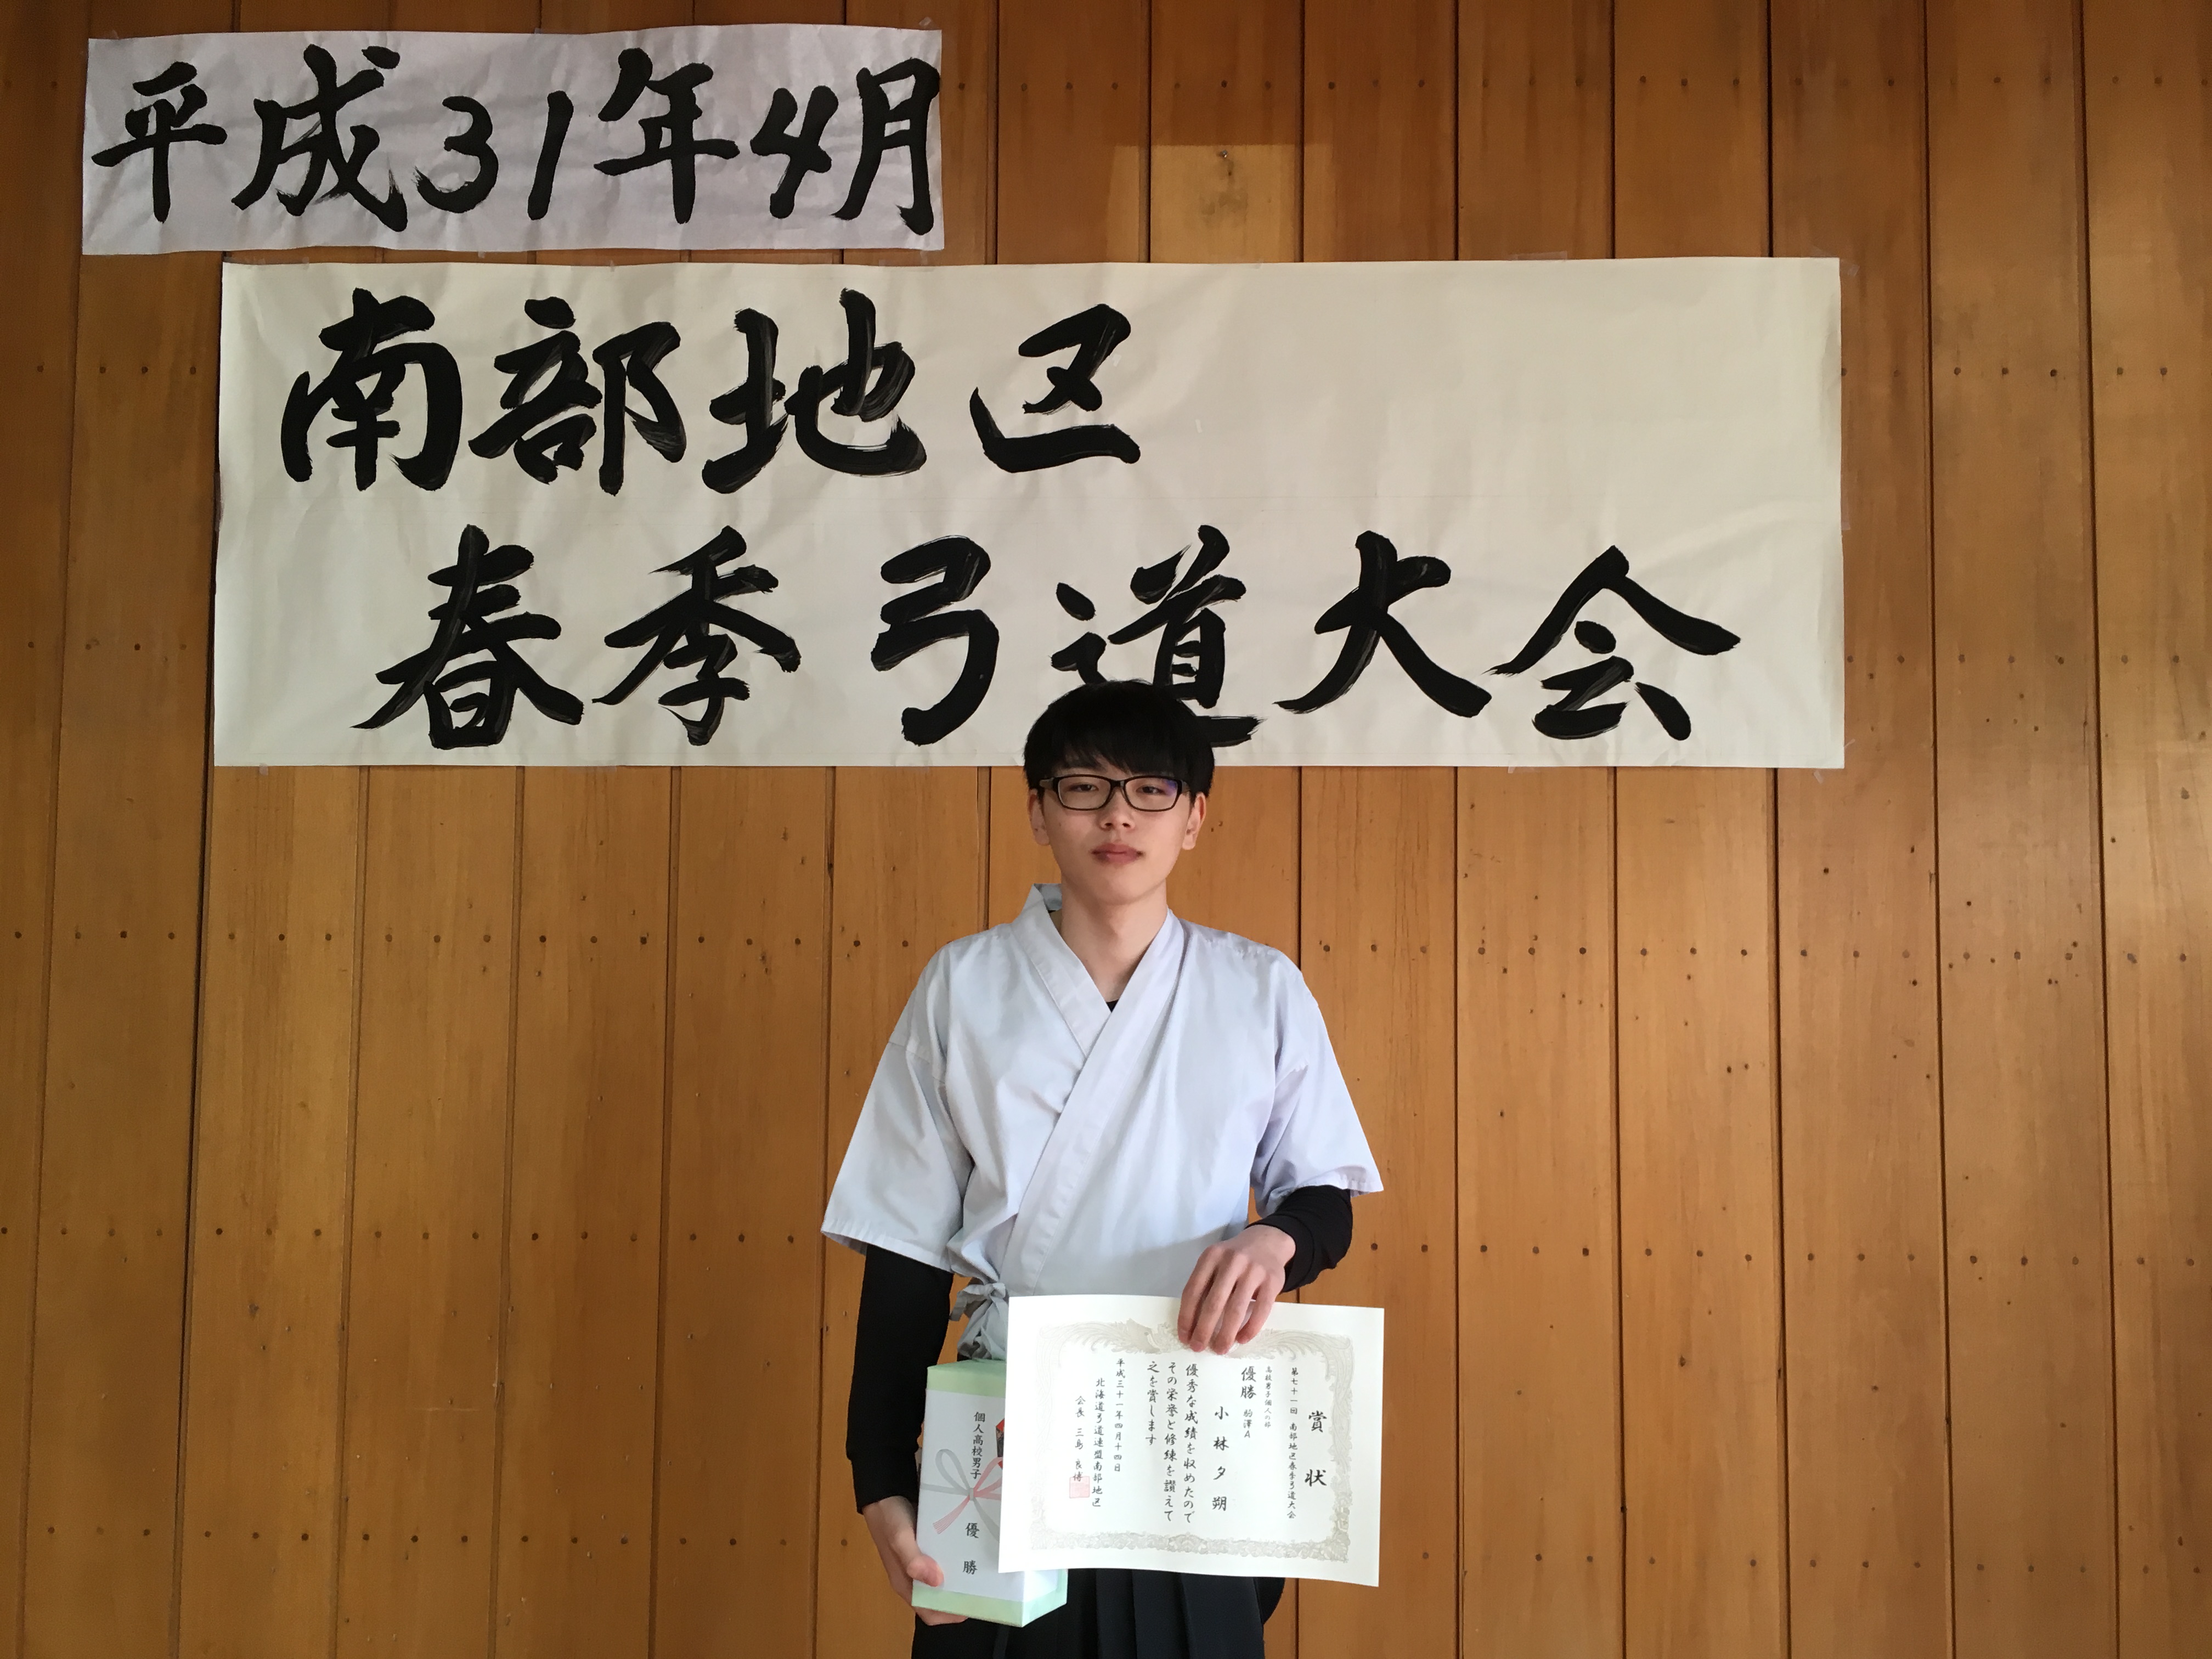 平成31年4月
南部地区
春季弓道大会
賞状
第七十一回 南部地区春季弓道大会
高校男子個人の部
優勝 駒澤A
小林夕朔
優秀な成績を収めたので
その栄誉と修練を讃えて
之を賞します
平成三十一年四月十四日
北海道弓道連盟南部地区
会長 三島 良博
個人高校男子
優勝